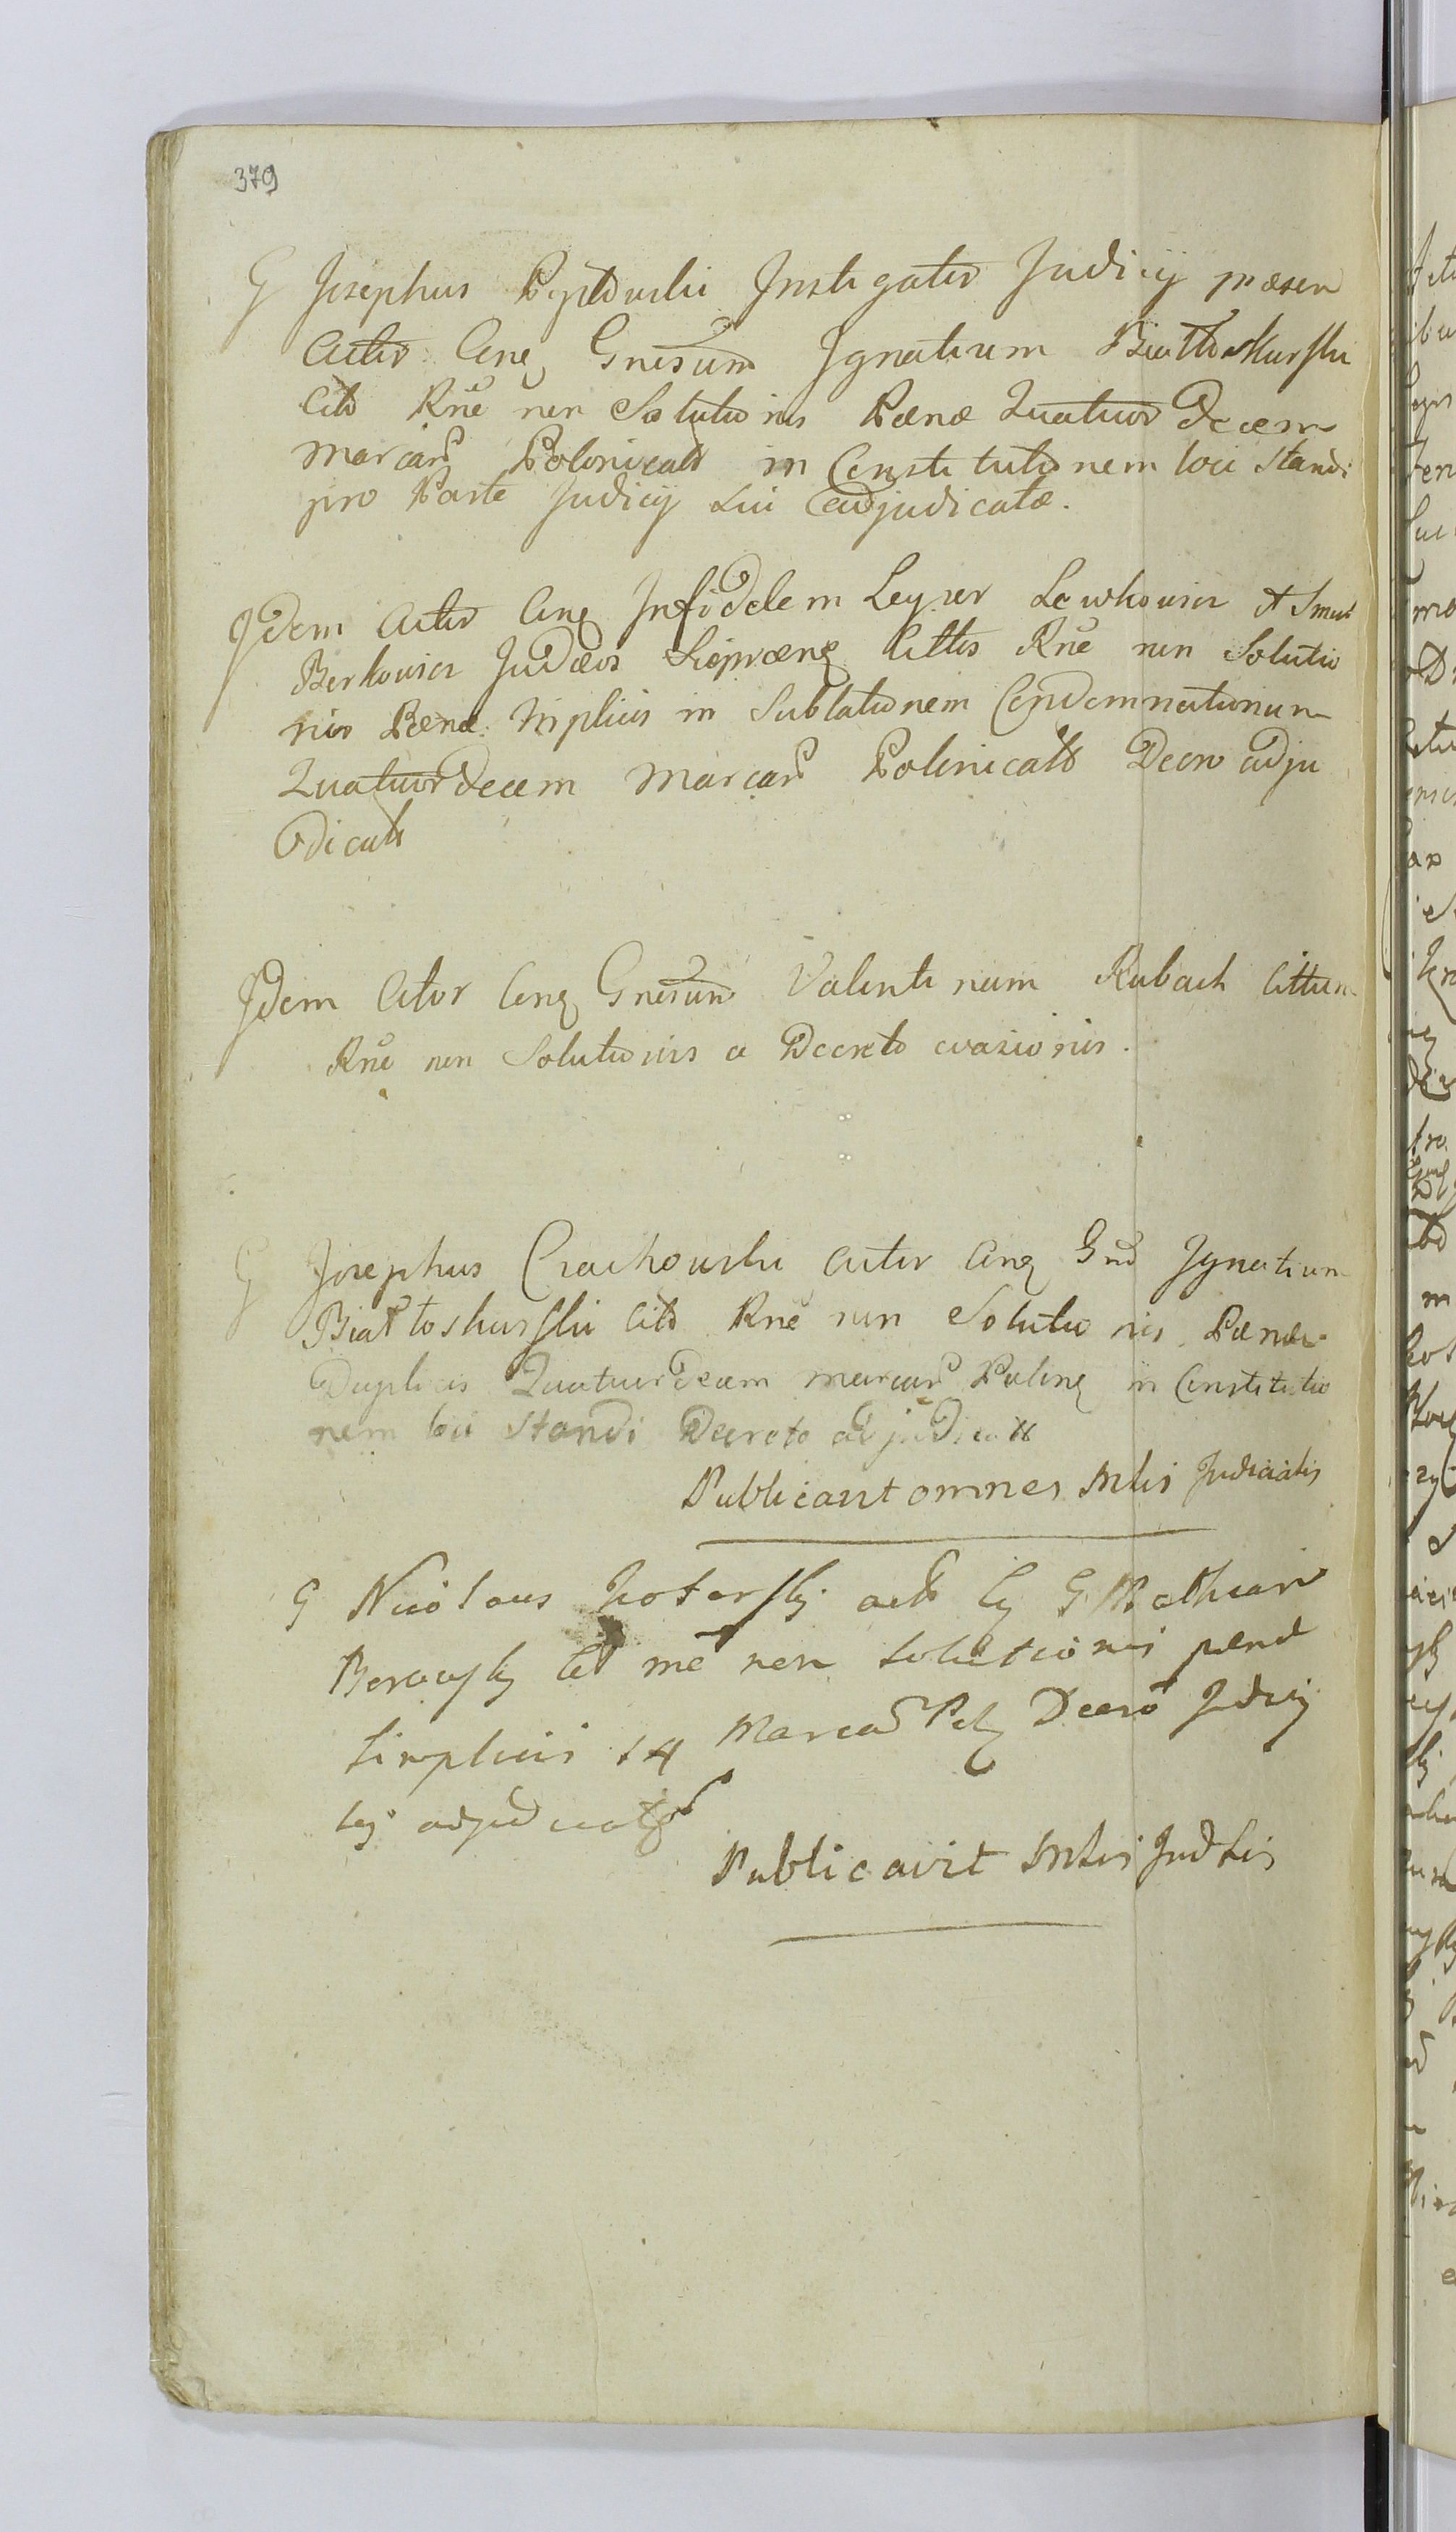 379
G Josephus Instigator Judicij præsen
Actor Conq Gnosum Ignatium Białłoskurski
Citō Rnē non Solutionis Pœnæ Quatuor Decem
Marcarū Polonicalō in Constitutionem loci Standi
pro Parte Judicij Sui adjudicatæ.
Idem Actor Conq Infidelem Leyzer Lewkowicz et Smul
Berkowicz Judæos Cittos Rnē non Solutio
nis Pœnæ triplicis in Sublationem Condemnationum
Quatuordecem Marcarū Polonicalō Decro adju
dicatæ
Idem Actor Conq Gnosum Valentinum Rubach Cittum
Rnē non Solutionis a Decreto evasionis.
G Josephus Czachowski Actor Conq Gnū Ignatium
Białłoskurski Citō Rnē non Solutionis Pœnæ
Duplicis Quatuordecem marcarū Polonq in Constitutio
nem loci Standi Decreto adjudicatæ
Publicavit omnes Mlis Judicialis
G Nicolaus actō Cq G Mathiam
Citō rnē non solutionis pœnæ
simplicis 14 Marcarū Polq Decro Judicij
sq adjudicatæ
Publicavit Mlis Judlis